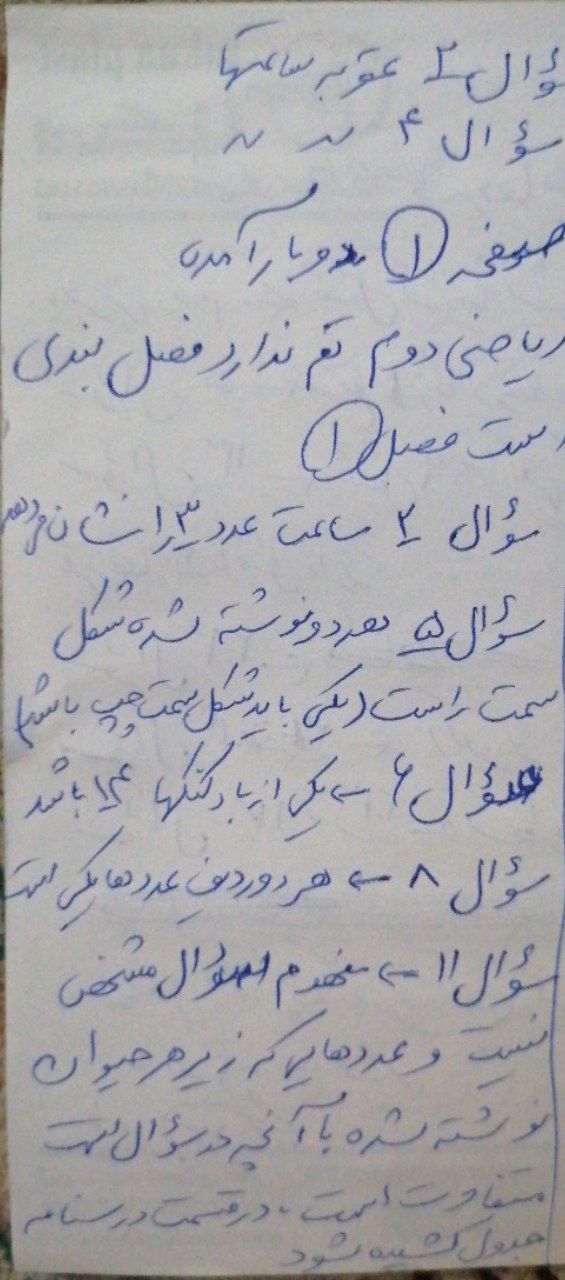 سؤال ۳ عقربه ساعتها
سؤال ۴ 〃 〃
صفحه ۱ دوبار آمده
ریاضی دوم تم ندارد فصل بندی
است فصل ۱
سؤال ۲ ساعت عدد ۳ را نشان می‌دهد
سؤال ۵ هر دو نوشته شده شکل
سمت راست (یکی باید شکل سمت چپ باشد)
سؤال ۶ ← یکی از بادکنکها ۱۴ باشد
سؤال ۸ ← هر دو ردیف عددها یکی است
سؤال ۱۱ ← مفهوم سؤال مشخص
نیست و عددهایی که زیر هر حیوان
نوشته شده با آنچه در سؤال است
متفاوت است، در قسمت درسنامه
جدول کشیده شود